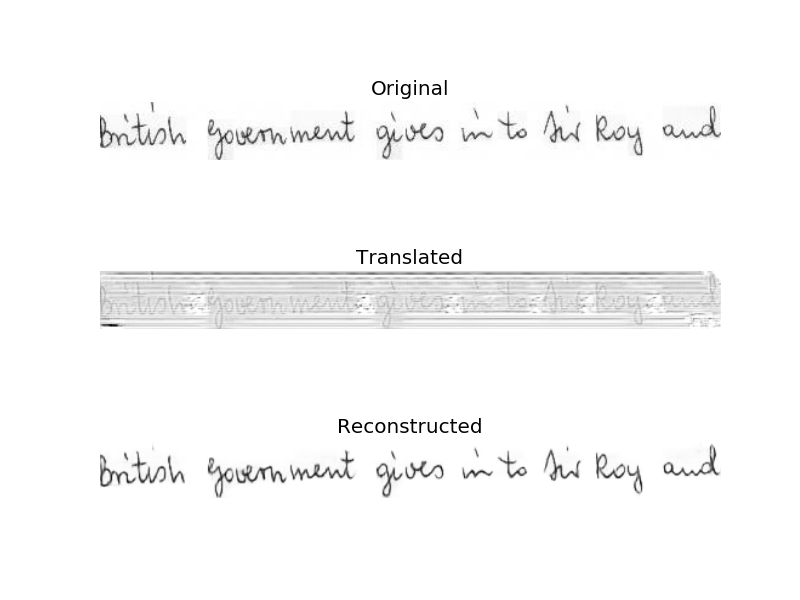 Original
British government gives in to Sir Roy and
Translated
British government gives in to Sir Roy and
Reconstructed
British government gives in to Sir Roy and